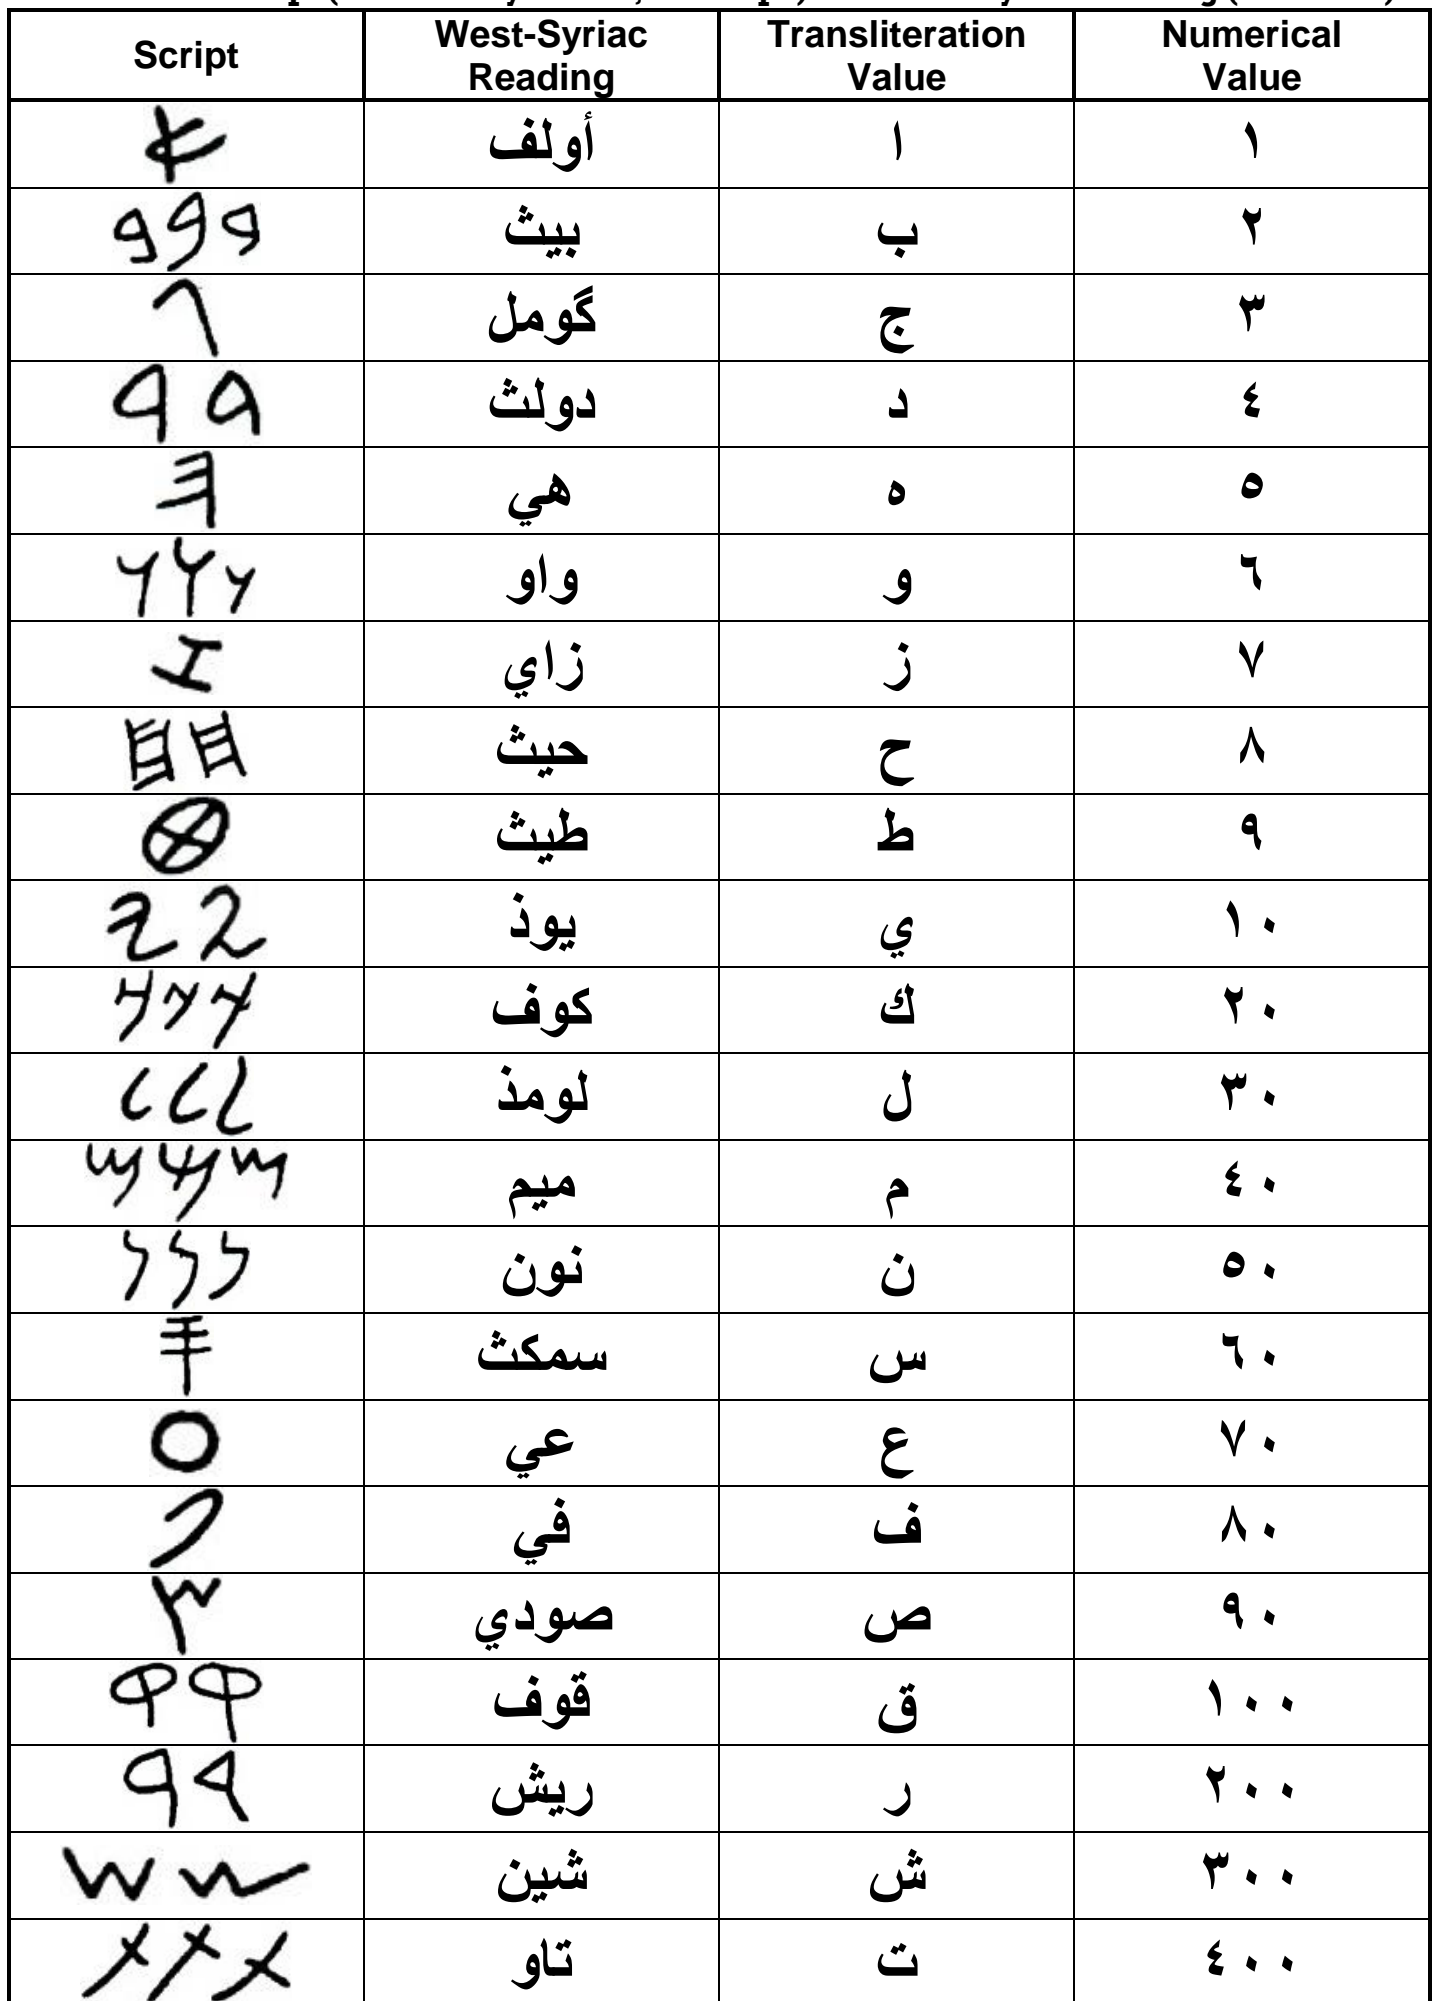 Script West-Syriac Reading Transliteration Value Numerical Value
𐤀 أولف ا ١
𐤁 𐤁 𐤁 بيث ب ٢
𐤂 گومل ج ٣
𐤃 𐤃 دولث د ٤
𐤄 هي ه ٥
𐤅 𐤅 𐤅 واو و ٦
𐤆 زاي ز ٧
𐤇 𐤇 حيث ح ٨
𐤈 طيث ط ٩
𐤉 𐤉 يوذ ي ١٠
𐤊 𐤊 𐤊 كوف ك ٢٠
𐤋 𐤋 𐤋 لومذ ل ٣٠
𐤌 𐤌 𐤌 ميم م ٤٠
𐤍 𐤍 𐤍 نون ن ٥٠
𐤎 سمكث س ٦٠
𐤏 عي ع ٧٠
𐤐 في ف ٨٠
𐤑 صودي ص ٩٠
𐤒 𐤒 قوف ق ١٠٠
𐤓 𐤓 ريش ر ٢٠٠
𐤔 𐤔 شين ش ٣٠٠
𐤕 𐤕 𐤕 تاو ت ٤٠٠